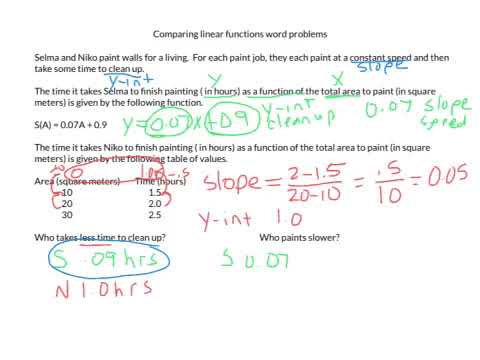 Comparing linear functions word problems
Selma and Niko paint walls for a living. For each paint job, they each paint at a constant speed and then
take some time to clean up.
y-int
slope
Y
X
The time it takes Selma to finish painting ( in hours) as a function of the total area to paint (in square
meters) is given by the following function.
S(A) = 0.07A + 0.9
y = 0.07x + 09
y-int
clean up
0.07 slope
speed
The time it takes Niko to finish painting ( in hours) as a function of the total area to paint (in square
meters) is given by the following table of values.
Area (square meters) Time (hours)
10 1.5
20 2.0
30 2.5
slope = 2-1.5 / 20-10 = .5 / 10 = 0.05
y-int 1.0
Who takes less time to clean up? Who paints slower?
S .09hrs
S 0.07
N 1.0hrs